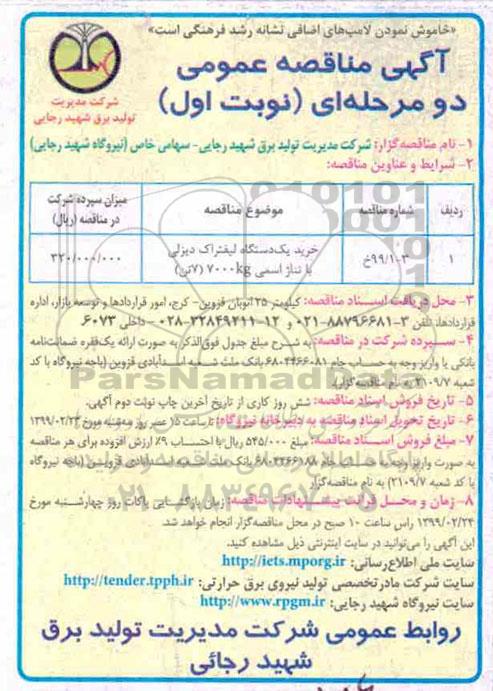 «خاموش نمودن لامپ‌های اضافی نشانه رشد فرهنگی است»
آگهی مناقصه عمومی
دو مرحله‌ای (نوبت اول)
شرکت مدیریت
تولید برق شهید رجایی
۱- نام مناقصه‌گزار: شرکت مدیریت تولید برق شهید رجایی- سهامی خاص (نیروگاه شهید رجایی)
۲- شرایط و عناوین مناقصه:
ردیف شماره مناقصه موضوع مناقصه میزان سپرده شرکت در مناقصه (ریال)
۱ ۹۹/۱-۳خ خرید یک‌دستگاه لیفتراک دیزلی با تناژ اسمی ۷۰۰۰kg (۷تن) ۳۲۰/۰۰۰/۰۰۰
۳- محل دریافت اسناد مناقصه: کیلومتر ۲۵ اتوبان قزوین- کرج، امور قراردادها و توسعه بازار، اداره
قراردادها، تلفن ۳-۸۸۷۹۶۶۸۱-۰۲۱ و ۱۲-۳۲۸۴۹۲۱۱-۰۲۸ - داخلی ۶۰۷۳
۴- سپرده شرکت در مناقصه: به شرح مبلغ جدول فوق‌الذکر به صورت ارائه یک‌فقره ضمانت‌نامه
بانکی یا واریز وجه به حساب جام ۶۸۰۴۴۶۶۰۸۱ بانک ملت شعبه اسدآبادی قزوین (باجه نیروگاه با کد
شعبه ۲۱۰۹/۷) به نام مناقصه‌گزار.
۵- تاریخ فروش اسناد مناقصه: شش روز کاری از تاریخ آخرین چاپ نوبت دوم آگهی.
۶- تاریخ تحویل اسناد مناقصه به دبیرخانه نیروگاه: تا ساعت ۱۵ عصر روز سه‌شنبه مورخ ۱۳۹۹/۰۲/۲۳
۷- مبلغ فروش اسناد مناقصه: مبلغ ۵۴۵/۰۰۰ ریال با احتساب ۹٪ ارزش افزوده برای هر مناقصه
به صورت واریز وجه به حساب جام ۶۸۰۳۴۶۶۱۸۸ بانک ملت شعبه اسدآبادی قزوین (باجه نیروگاه
با کد شعبه ۲۱۰۹/۷) به نام مناقصه‌گزار
۸- زمان و محل قرائت پیشنهادات مناقصه: زمان بازگشایی پاکات روز چهارشنبه مورخ
۱۳۹۹/۰۲/۲۴ راس ساعت ۱۰ صبح در محل مناقصه‌گزار انجام خواهد شد.
این آگهی را می‌توانید در سایت اینترنتی ذیل مشاهده کنید.
سایت ملی اطلاع‌رسانی: http://iets.mporg.ir
سایت شرکت مادرتخصصی تولید نیروی برق حرارتی: http://tender.tpph.ir
سایت نیروگاه شهید رجایی: http://www.rpgm.ir
روابط عمومی شرکت مدیریت تولید برق
شهید رجائی
ParsNamadData